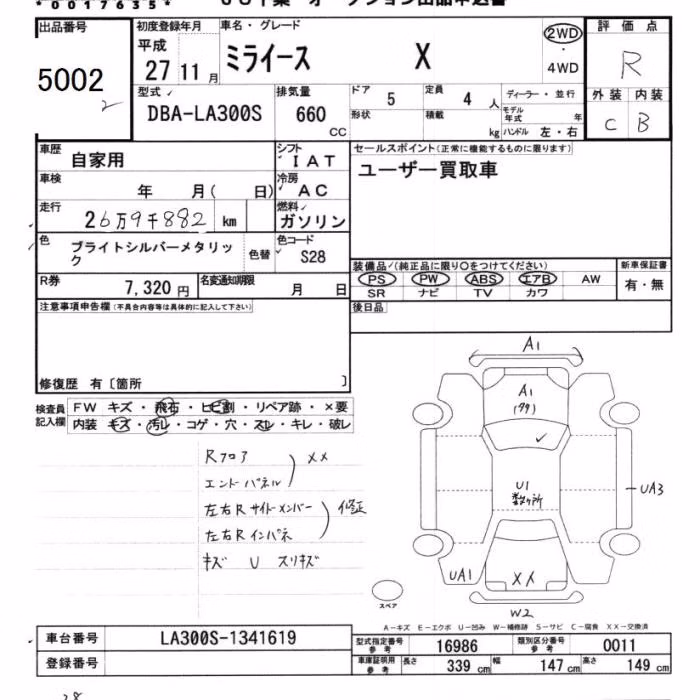 *0017635*
出品番号
5002
2
初度登録年月
平成
27 11 月
車名・グレード
ミライース X
2WD
4WD
評価点
R
外装 内装
C B
型式
DBA-LA300S
排気量
660
CC
ドア 5
定員 4 人
形状
積載 kg
ディーラー・並行
モデル年式 年
ハンドル 左・右
車歴
自家用
シフト
IAT
セールスポイント(正常に機能するものに限ります)
ユーザー買取車
車検
年 月( 日)
冷房
AC
走行
26万9千882 km
燃料
ガソリン
色
ブライトシルバーメタリック
色替
色コード
S28
R券
7,320 円
名変通知期限
月 日
装備品(純正品に限り○をつけてください)
PS PW ABS エアB AW
SR ナビ TV カワ
新車保証書
有・無
後日品
注意事項申告欄(不具合内容等は具体的に記入して下さい)
修復歴 有〔箇所 〕
検査員記入欄
FW キズ・飛石・ヒビ割・リペア跡・×要
内装 キズ・汚レ・コゲ・穴・スレ・キレ・破レ
Rフロア
エンドパネル
XX
左右Rサイドメンバー
左右Rインパネ
修正
キズ U スリキズ
A1
A1
U1
数ヶ所
UA3
UA1
XX
W2
スペア
A-キズ E-エクボ U-凹み W-補修跡 S-サビ C-腐食 XX-交換済
車台番号
LA300S-1341619
登録番号
型式指定番号参考
16986
類別区分番号参考
0011
車庫証明用参考
長さ 339 cm
幅 147 cm
高さ 149 cm